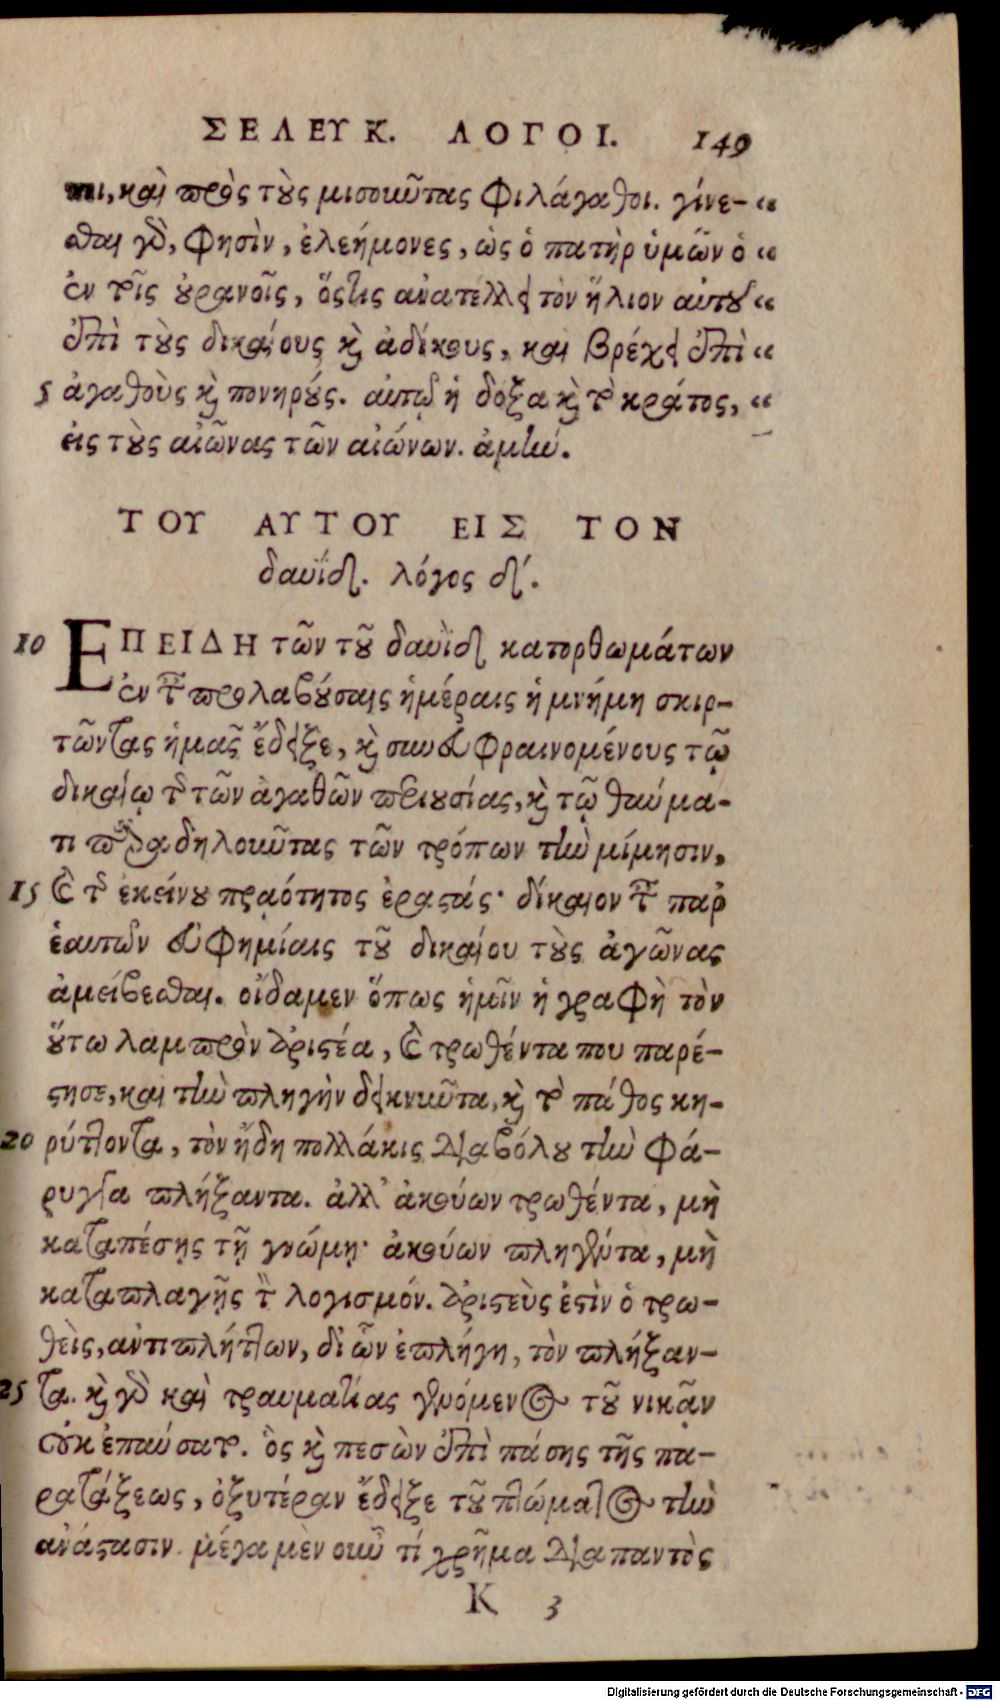 ΣΕΛΕΥΚ. ΛΟΓΟΙ. 149
καὶ πρὸς τοὺς μισοῦντας φιλάγαθοι. γίνε- “
σθαι γὰρ, φησὶν, ἐλεήμονες, ὡς ὁ πατὴρ ὑμῶν ὁ “
ἐν τοῖς οὐρανοῖς, ὅστις ἀνατέλλει τὸν ἥλιον αὐτοῦ “
ἐπὶ τοὺς δικαίους καὶ ἀδίκους, καὶ βρέχει ἐπὶ “
5 ἀγαθοὺς καὶ πονηρούς. αὐτῷ ἡ δόξα καὶ τὸ κράτος, “
εἰς τοὺς αἰῶνας τῶν αἰώνων. ἀμήν.
ΤΟΥ ΑΥΤΟΥ ΕΙΣ ΤΟΝ
δαυΐδ. λόγος δ΄.
10 ΕΠΕΙΔΗ τῶν τοῦ δαυῒδ κατορθωμάτων
ἐν ταῖς προλαβούσαις ἡμέραις ἡ μνήμη σκιρ-
τῶντας ἡμᾶς ἔδειξε, καὶ συνευφραινομένους τῷ
δικαίῳ τῆς τῶν ἀγαθῶν περιουσίας, καὶ τῷ θαύμα-
τι παραδηλοῦντας τῶν τρόπων τὴν μίμησιν,
15 καὶ τῆς ἐκείνου πραότητος ἐραστάς· δίκαιον ταῖς παρ'
ἑαυτῶν εὐφημίαις τοῦ δικαίου τοὺς ἀγῶνας
ἀμείβεσθαι. οἴδαμεν ὅπως ἡμῖν ἡ γραφὴ τὸν
οὕτω λαμπρὸν ἀριστέα, καὶ τρωθέντα που παρέ-
στησε, καὶ τὴν πληγὴν δεικνῦντα, καὶ τὸ πάθος κη-
20 ρύττοντα, τὸν ἤδη πολλάκις διαβόλου τὴν φά-
ρυγγα πλήξαντα. ἀλλ' ἀκούων τρωθέντα, μὴ
καταπέσῃς τῇ γνώμῃ· ἀκούων πληγέντα, μὴ
καταπλαγῇς τὸν λογισμόν. ἀριστεὺς ἐστὶν ὁ τρω-
θεὶς, ἀντιπλήττων, δι' ὧν ἐπλήγη, τὸν πλήξαν-
25 τα. καὶ γὰρ καὶ τραυματίας γενόμενος τοῦ νικᾷν
οὐκ ἐπαύσατο. ὃς καὶ πεσὼν ἐπὶ πάσης τῆς πα-
ρατάξεως, ὀξυτέραν ἔδειξε τοῦ πτώματος τὴν
ἀνάστασιν. μέγα μὲν οὖν τί χρῆμα διαπαντὸς
K 3
Digitalisierung gefördert durch die Deutsche Forschungsgemeinschaft - DFG